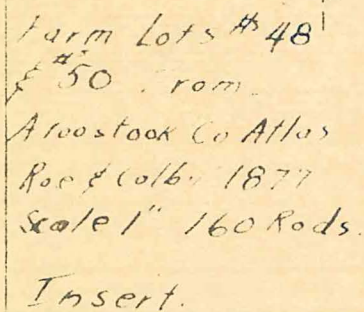 Farm Lots #s 48
& #50 From
Aroostook Co Atlas
Roe & Colby 1877
Scale 1" 160 Rods.
Insert.